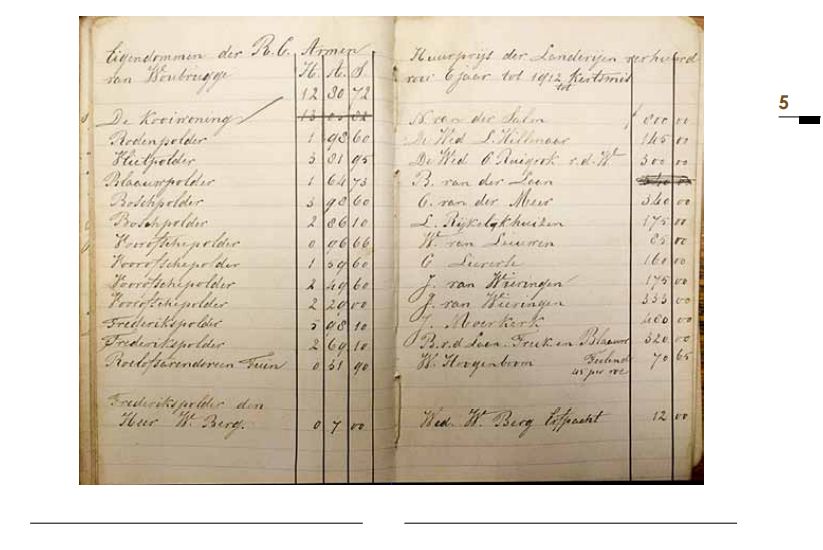 Eigendommen der R.C. Armen
van Woubrugge H. A. S.
12 80 72
De Kooiwoning
Rodenpolder 1 98 60
Vlietpolder 3 81 95
Blaauwpolder 1 64 73
Boschpolder 3 98 60
Boschpolder 2 86 10
Voorofschepolder 0 96 66
Voorofschepolder 1 59 60
Voorofschepolder 2 49 60
Voorofschepolder 2 29 00
Frederikspolder 5 98 10
Frederikspolder 2 69 10
Roelofsarendsveen Tuin 0 31 90
Frederikspolder den
Heer W. Berg. 0 7 00
Huurprijs der Landerijen verhuurd
voor 6 jaar tot 1912 Kerstmis
tot
N. van der Salm f 800 00
De Wed L. Hillenaar 145 00
De Wed C Ruigrok v.d. W 300 00
B. van der Laan
C. van der Meer 340 00
L. Rijkelijkhuizen 175 00
W. van Leeuwen 85 00
G 160 00
J. van Wieringen 175 00
J. van Wieringen 333 00
J. Moerkerk 480 00
B. v.d Laan. Freek en Blaauw 320 00
W. Hoogenboom 70 65
per roe
Wed. W. Berg Erfpacht 12 00
5